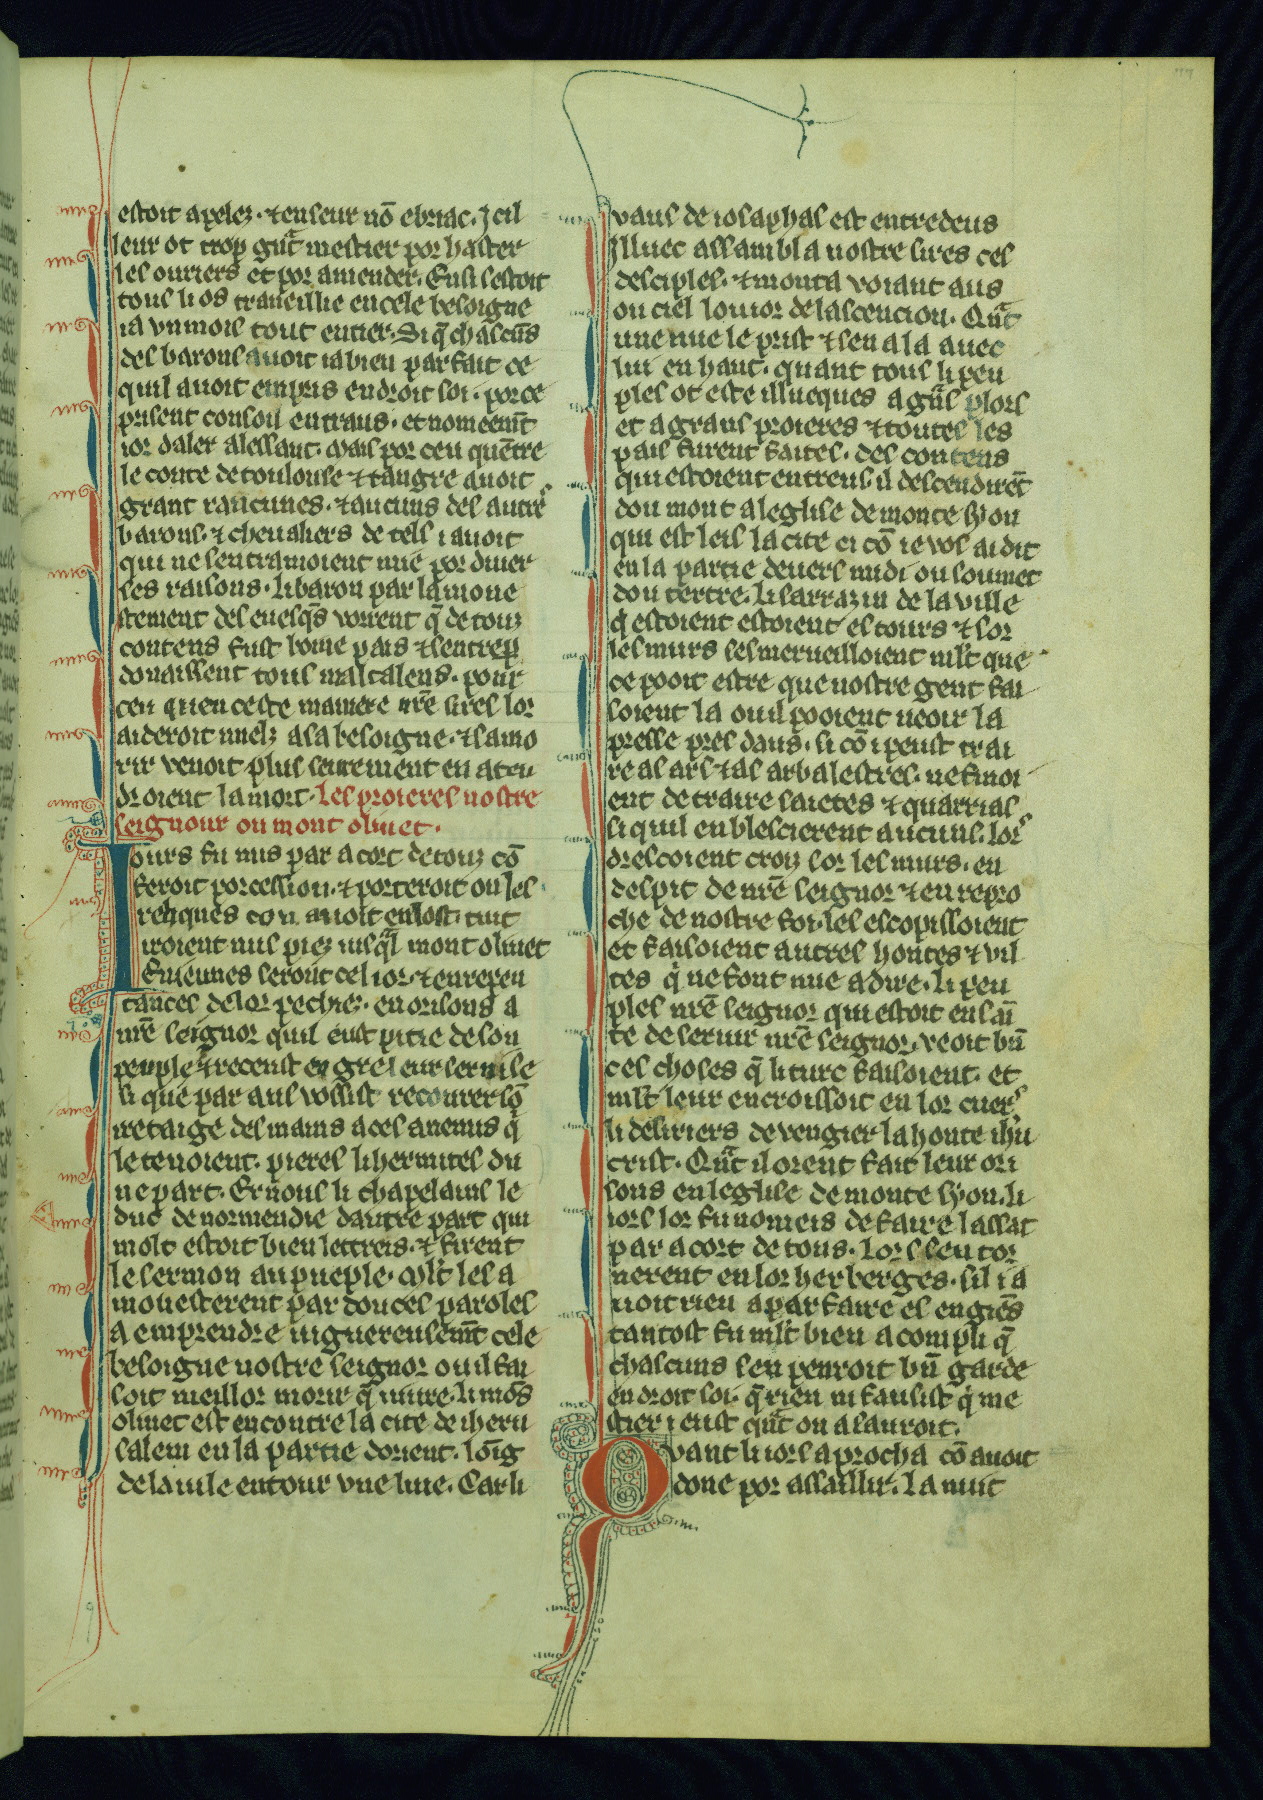 estoit apelez. ⁊ en leur nō ebriac. J cil
leur ot trop gͣt mestier por haster
les ouriers et por amender. Ensi sestoit
tous li os traueillie en cele besoigne
ia vn mois tout entier. Si q̄ chascūs
des barons auoit ia bien parfait ce
quil auoit empris endroit soi. por ce
pristrent consoil entraus. et nomeem̄t
ior daler alessaut. Mais por ceu quētre
le conte de toulouse ⁊ tangre auoit
grant rancunes. ⁊ aucuns des autrͤs
barons. ⁊ cheualiers de tels i auoit
qui ne sentramoient mie por diuer
ses raisons. li baron par lamone
stement des euesq̄s vorrent q̄ de touz
contens fust bone pais ⁊ sentrep̱
donaissent tous maltalens. pour
ceu quen ceste maniere nr̄e sires lor
aideroit miels a sa besoigne. ⁊ sa mo
rir venoit plus seurement en aten
droient la mort. Les proieres nostre
seignour ou mont oliuet.
Jours fu mis par acort de touz cō
feroit porcession. ⁊ porteroit on les
reliques con auoit en lost. tuit
iroient nus piez iusqͣl mont oliuet
En ieunes seront cel ior. ⁊ en repen
tances de lor pechiez. en orisons a
nr̄e seignor quil eust pitie de son
peuple ⁊ receust en gre leur seruise
si que par aus vossist recourer sō
iretaige des mains a ces anemis q̇
le tenoient. pieres li hermites du
ne part. Ernous li chapelains le
duc de normendie dautre part qui
molt estoit bien lettreis. ⁊ firent
le sermon au pueple. Ml̄t les a
monesterent par douces paroles
a emprendre uiguereusem̄t cele
besoigne nostre seignor ou il fai
soit meillor morir q̄ uiure. li mōs
oliuet est encontre la cite de iheru
salem en la partie dorient. lōig
de la uile entour vne liue. Car li
vaus de iosaphas est entredeus
Illuec assambla nostre sires ces
desciples. ⁊ monta voiant aus
ou ciel lo iuior de lascencion. Qͣnt
une nue le prist ⁊ sen ala auec
lui en haut. quant tous li peu
ples ot este illueques a gn̄s plors
et a grans proieres ⁊ toutes les
pais furent faites. des contens
qui estoient entreus. il descendirēt
dou mont a leglise de monte syon
qui est leis la cite ci cō ie vos ai dit
en la partie deuers midi ou soumet
dou tertre. li sarrazin de la ville
q̇ estoient estoient es tours ⁊ sor
les murs sesmerueilloient ml̄t que
ce pooit estre que nostre gent fai
soient la ou il pooient ueoir la
presse pres daus. si cō i peust trai
re as ars ⁊ as arbalestres. ne finoi
ent de traire saietes ⁊ quarrias
si quil en blescierent aucuns. lors
drescoient croiz sor les murs. en
despit de nr̄e seignor ⁊ en repro
che de nostre foi. les escopissoient
et faisoient autres hontes ⁊ vil
tes q̇ ne font mie a dire. li peu
ples nr̄e seignor qui estoit en saī
te de seruir nr̄e seignor. veoit bn̄
ces choses q̄ li turc faisoient. et
ml̄t leur encroissoit en lor cuers
li desiriers de vengier la honte ihū
crist. Qͣnt il orent fait leur ori
sons en leglise de monte syon. li
iors lor fu nomeis de faire lassat
par acort de tous. Lors sen tor
nerent en lor herberges. sil i a
uoit rien a parfaire es engiēs
tantost fu ml̄t bien acompli q̄
chascuns sen penroit bn̄ garde
en droit soi. q̄ rien ni fausist q̇ me
stier i eust qͣnt on asauroit.
Qvant li iors aprocha cō auoit
done por assaillir. la nuit